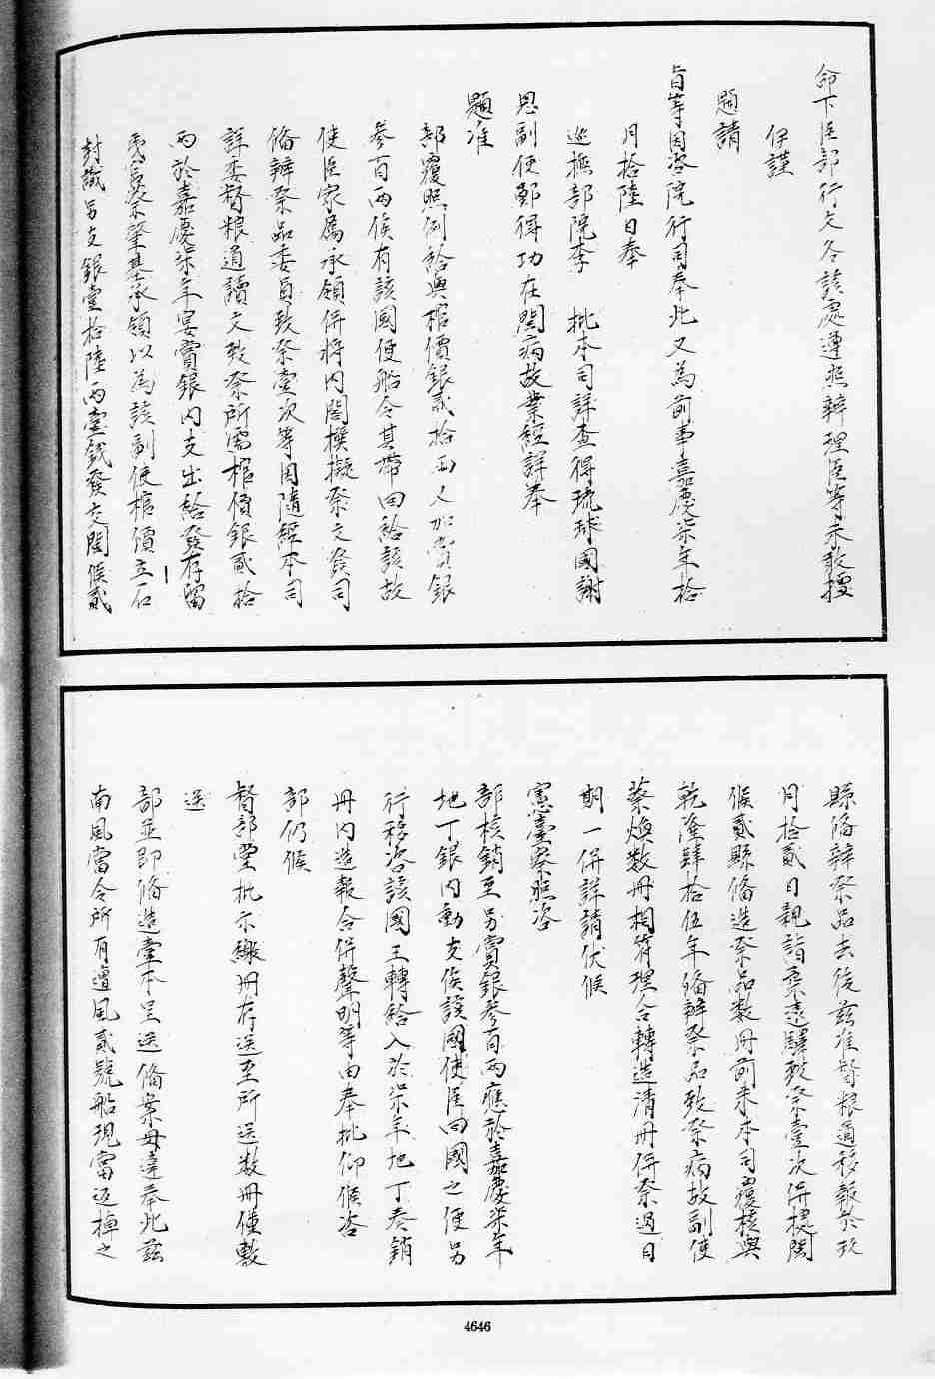 命下臣部行文各該處遵照辦理臣等未敢擅
伊謹
題請
旨等因咨院行司奉此又為前事嘉慶柒年拾
月拾陸日奉
巡撫部院李　批本司詳查得琉球國謝
恩副使鄭得功在閩病故業經詳奉
題准
部覆照例給與棺價銀貳拾兩又加賞銀
參百兩俟有該國便船令其帶回給該故
使臣家屬承領併將內閣撰擬祭文發司
俻辦祭品委員致祭壹次等因隨經本司
詳委督粮道讀文致祭所需棺價銀貳拾
兩於嘉慶柒年宴賞銀內支出給發存留
蔡肇基承領以為該副使棺價立石
封識另支銀壹拾陸兩壹錢發交閩侯貳
縣俻辦祭品去後茲准督粮道移報於玖
月拾貳日親詣柔遠驛致祭壹次併據閩
候貳縣俻造祭品數冊前來本司覆核與
乾隆肆拾伍年俻辦祭品致祭病故副使
蔡煥數冊相符理合轉造清冊併祭過日
期一併詳請伏候
憲臺察照咨
部核銷至另賞銀參百兩應於嘉慶柒年
地丁銀內動支俟該國使臣回國之便另
行移咨該國王轉給入於柒年地丁奏銷
冊內造報合併聲明等由奉批仰候咨
部仍候
督部堂批示繳冊存送至所送數冊僅敷
送
部並即俻造壹本呈送俻案毋違奉此茲
南風當令所有遭風貳號船現當返棹之
4646